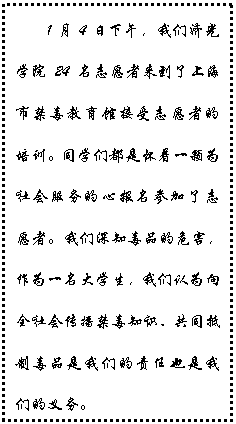 1月4日下午，我们济光
学院24名志愿者来到了上海
市禁毒教育馆接受志愿者的
培训。同学们都是怀着一颗为
社会服务的心报名参加了志
愿者。我们深知毒品的危害，
作为一名大学生，我们认为向
全社会传播禁毒知识、共同抵
制毒品是我们的责任也是我
们的义务。